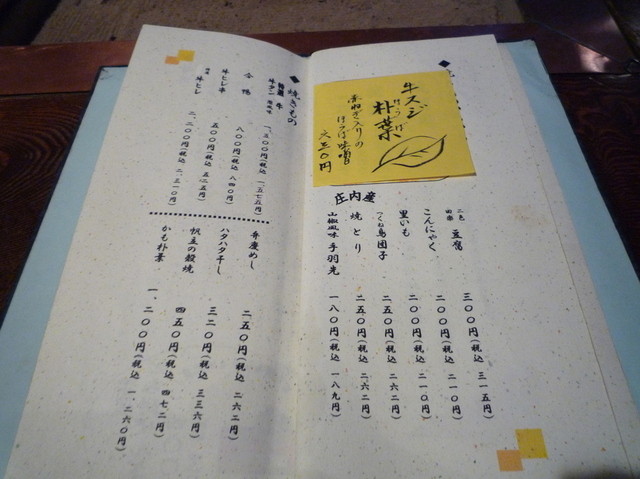 牛スジ
朴葉
ほうば
青ねぎ入りの
ほうば味噌
六三〇円
二色
田楽 豆腐 三〇〇円(税込 三一五円)
こんにゃく 二〇〇円(税込 二一〇円)
里いも 二〇〇円(税込 二一〇円)
つくね鳥団子 二五〇円(税込 二六二円)
焼とり 二五〇円(税込 二六二円)
山椒風味 手羽先 一八〇円(税込 一八九円)
庄内産
◆焼きもの
牛タン 一、五〇〇円(税込 一、五七五円)
合鴨 八〇〇円(税込 八四〇円)
牛ヒレ串 五〇〇円(税込 五二五円)
牛ヒレ 二、二〇〇円(税込 二、三一〇円)
弁慶めし 二五〇円(税込 二六二円)
ハタハタ干し 三二〇円(税込 三三六円)
帆立の殻焼 四五〇円(税込 四七二円)
かも朴葉 一、二〇〇円(税込 一、二六〇円)